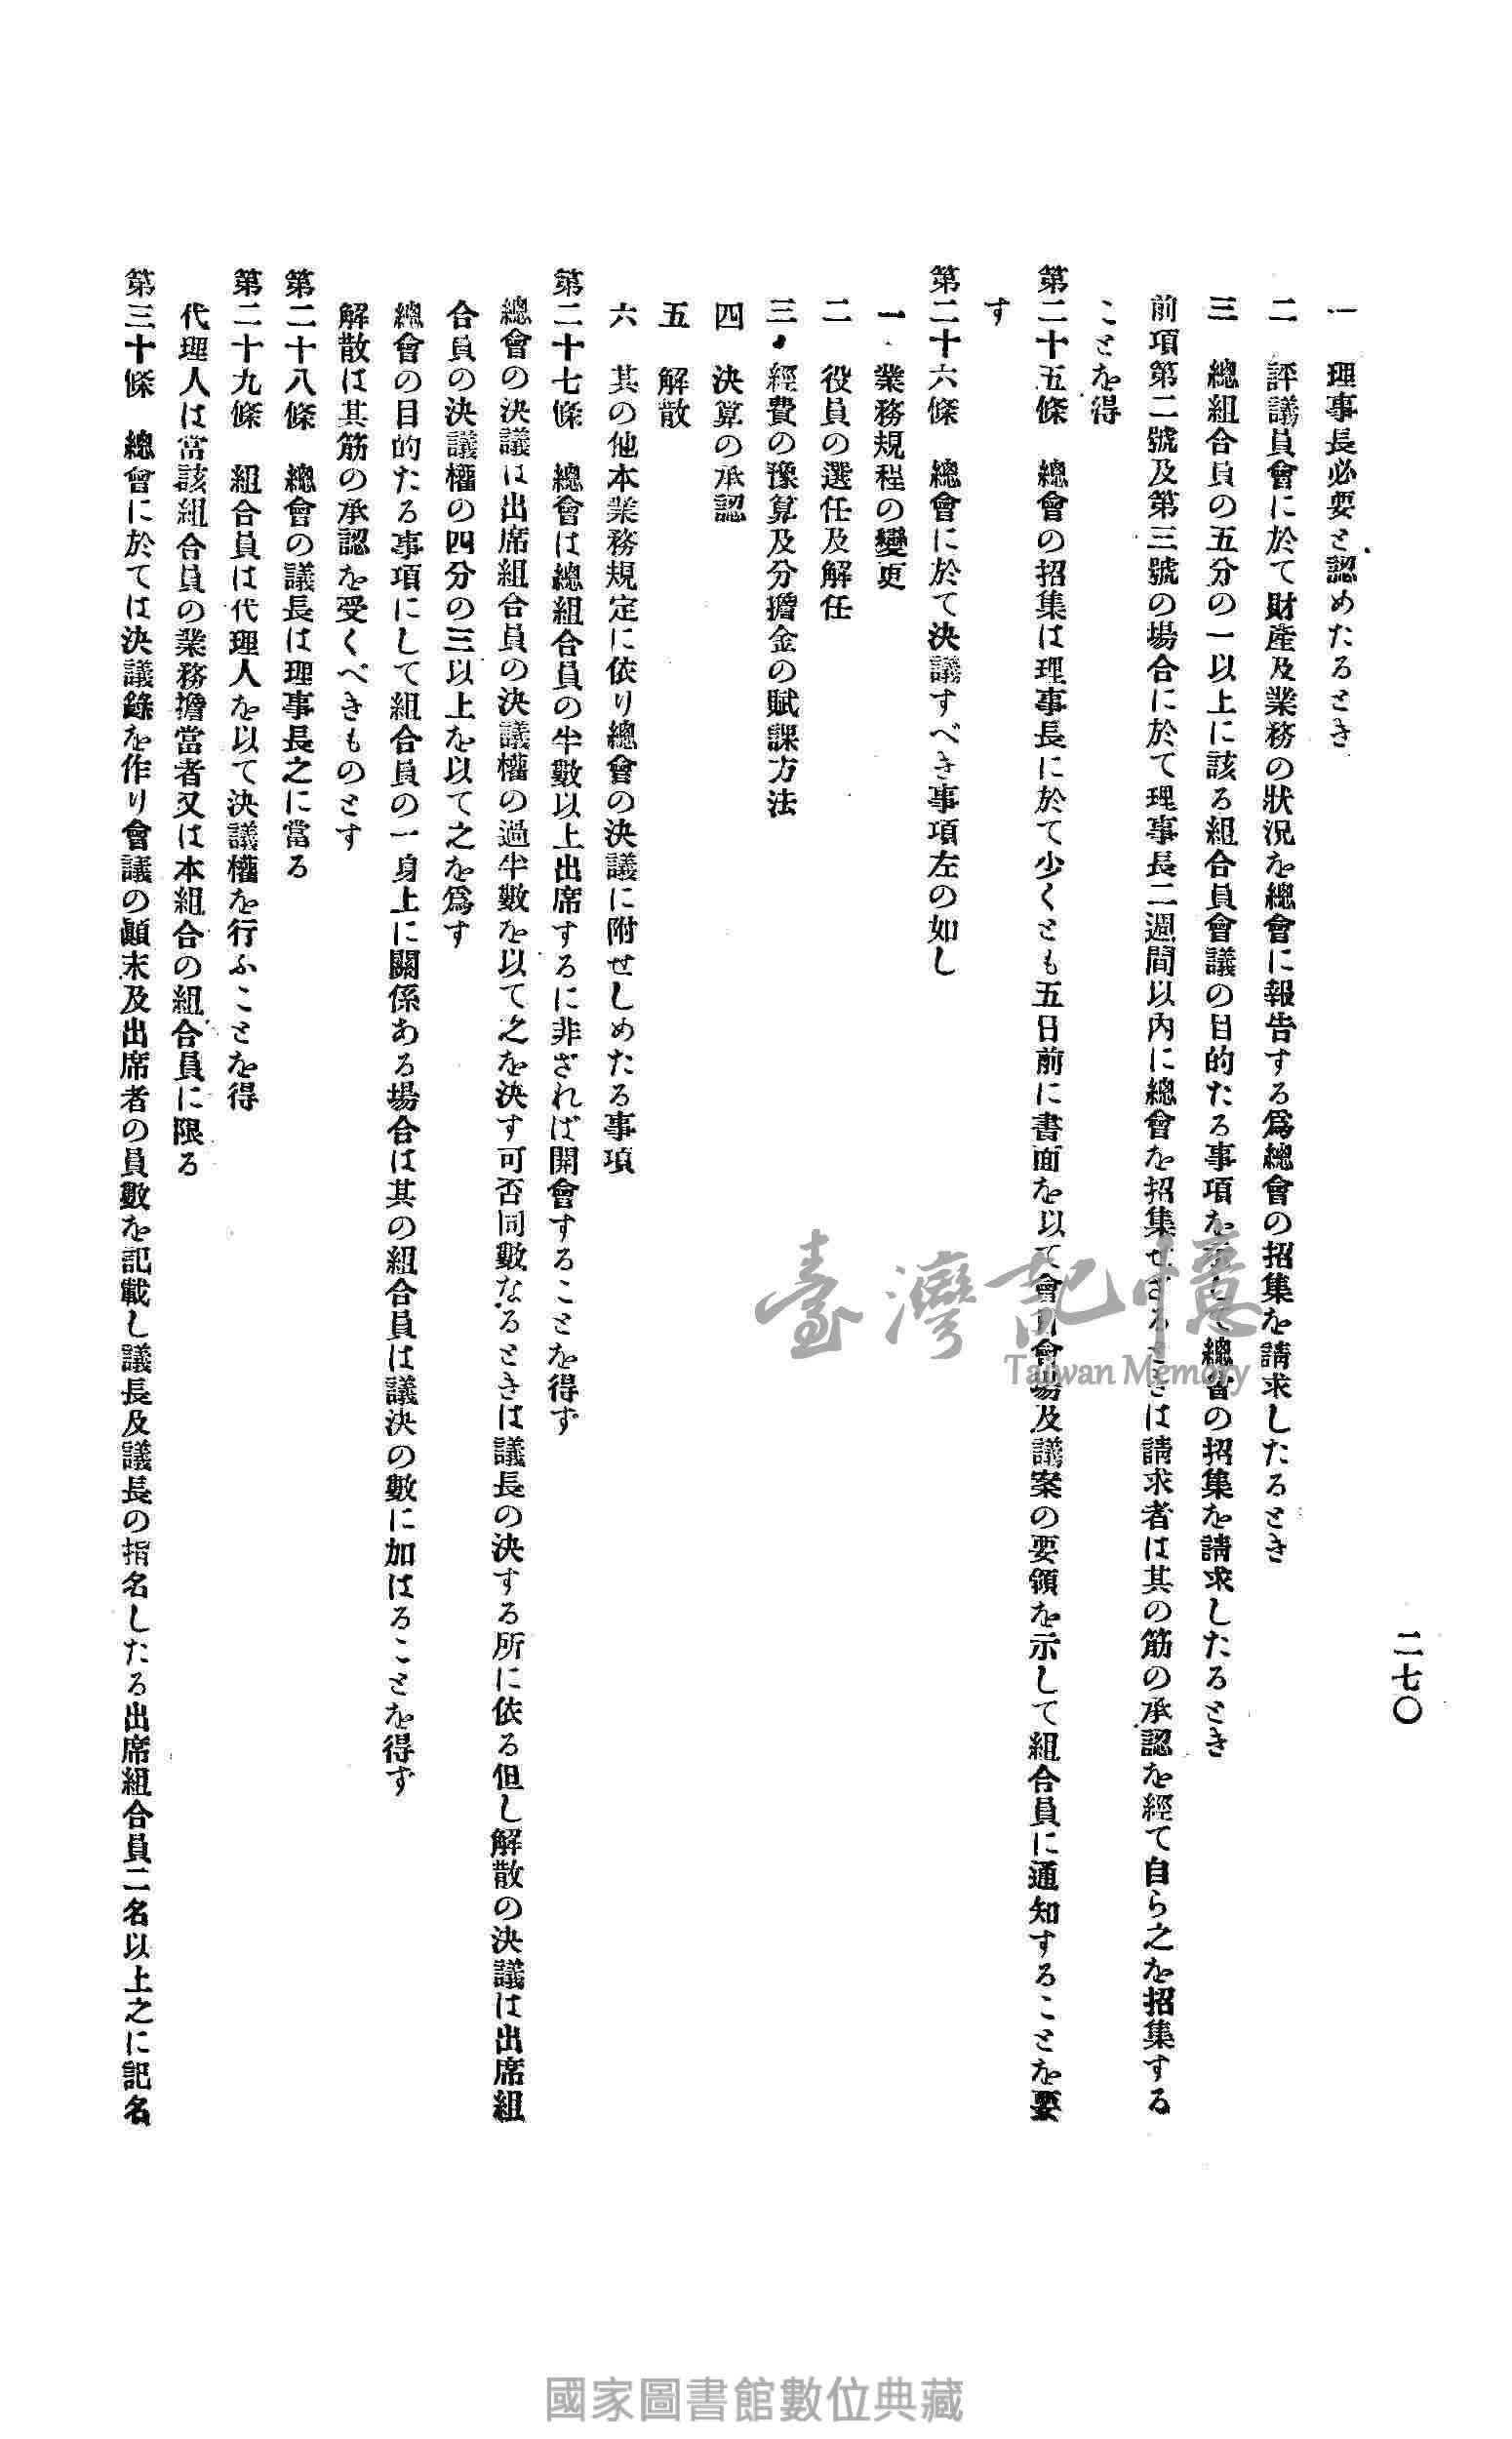 二七〇
一　理事長必要と認めたるとき
二　評議員會に於て財產及業務の狀況を總會に報告する爲總會の招集を請求したるとき
三　總組合員の五分の一以上に該る組合員會議の目的たる事項を して總會の招集を請求したるとき
前項第二號及第三號の場合に於て理事長二週間以內に總會を招集せざるときは請求者は其の筋の承認を經て自ら之を招集する
ことを得
第二十五條　總會の招集は理事長に於て少くとも五日前に書面を以て會 會場及議案の要領を示して組合員に通知することを要
す
第二十六條　總會に於て決議すべき事項左の如し
一　業務規程の變更
二　役員の選任及解任
三　經費の豫算及分擔金の賦課方法
四　決算の承認
五　解散
六　其の他本業務規定に依り總會の決議に附せしめたる事項
第二十七條　總會は總組合員の半數以上出席するに非ざれば開會することを得ず
總會の決議は出席組合員の決議權の過半數を以て之を決す可否同數なるときは議長の決する所に依る但し解散の決議は出席組
合員の決議權の四分の三以上を以て之を爲す
總會の目的たる事項にして組合員の一身上に關係ある場合は其の組合員は議決の數に加はることを得ず
解散は其筋の承認を受くべきものとす
第二十八條　總會の議長は理事長之に當る
第二十九條　組合員は代理人を以て決議權を行ふことを得
代理人は當該組合員の業務擔當者又は本組合の組合員に限る
第三十條　總會に於ては決議錄を作り會議の顚末及出席者の員數を記載し議長及議長の指名したる出席組合員二名以上之に記名
臺灣記憶
Taiwan Memory
國家圖書館數位典藏